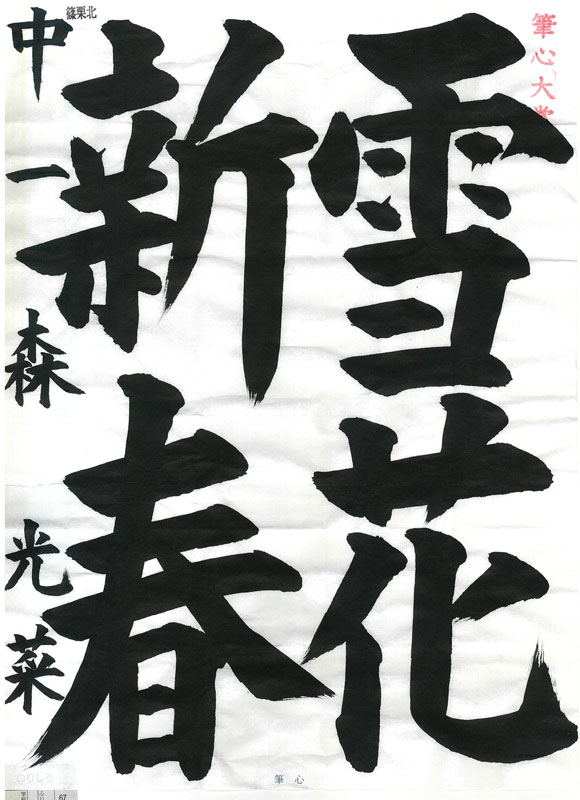 筆心大賞
雪花
新春
篠栗北
中一 森 光菜
筆心
67